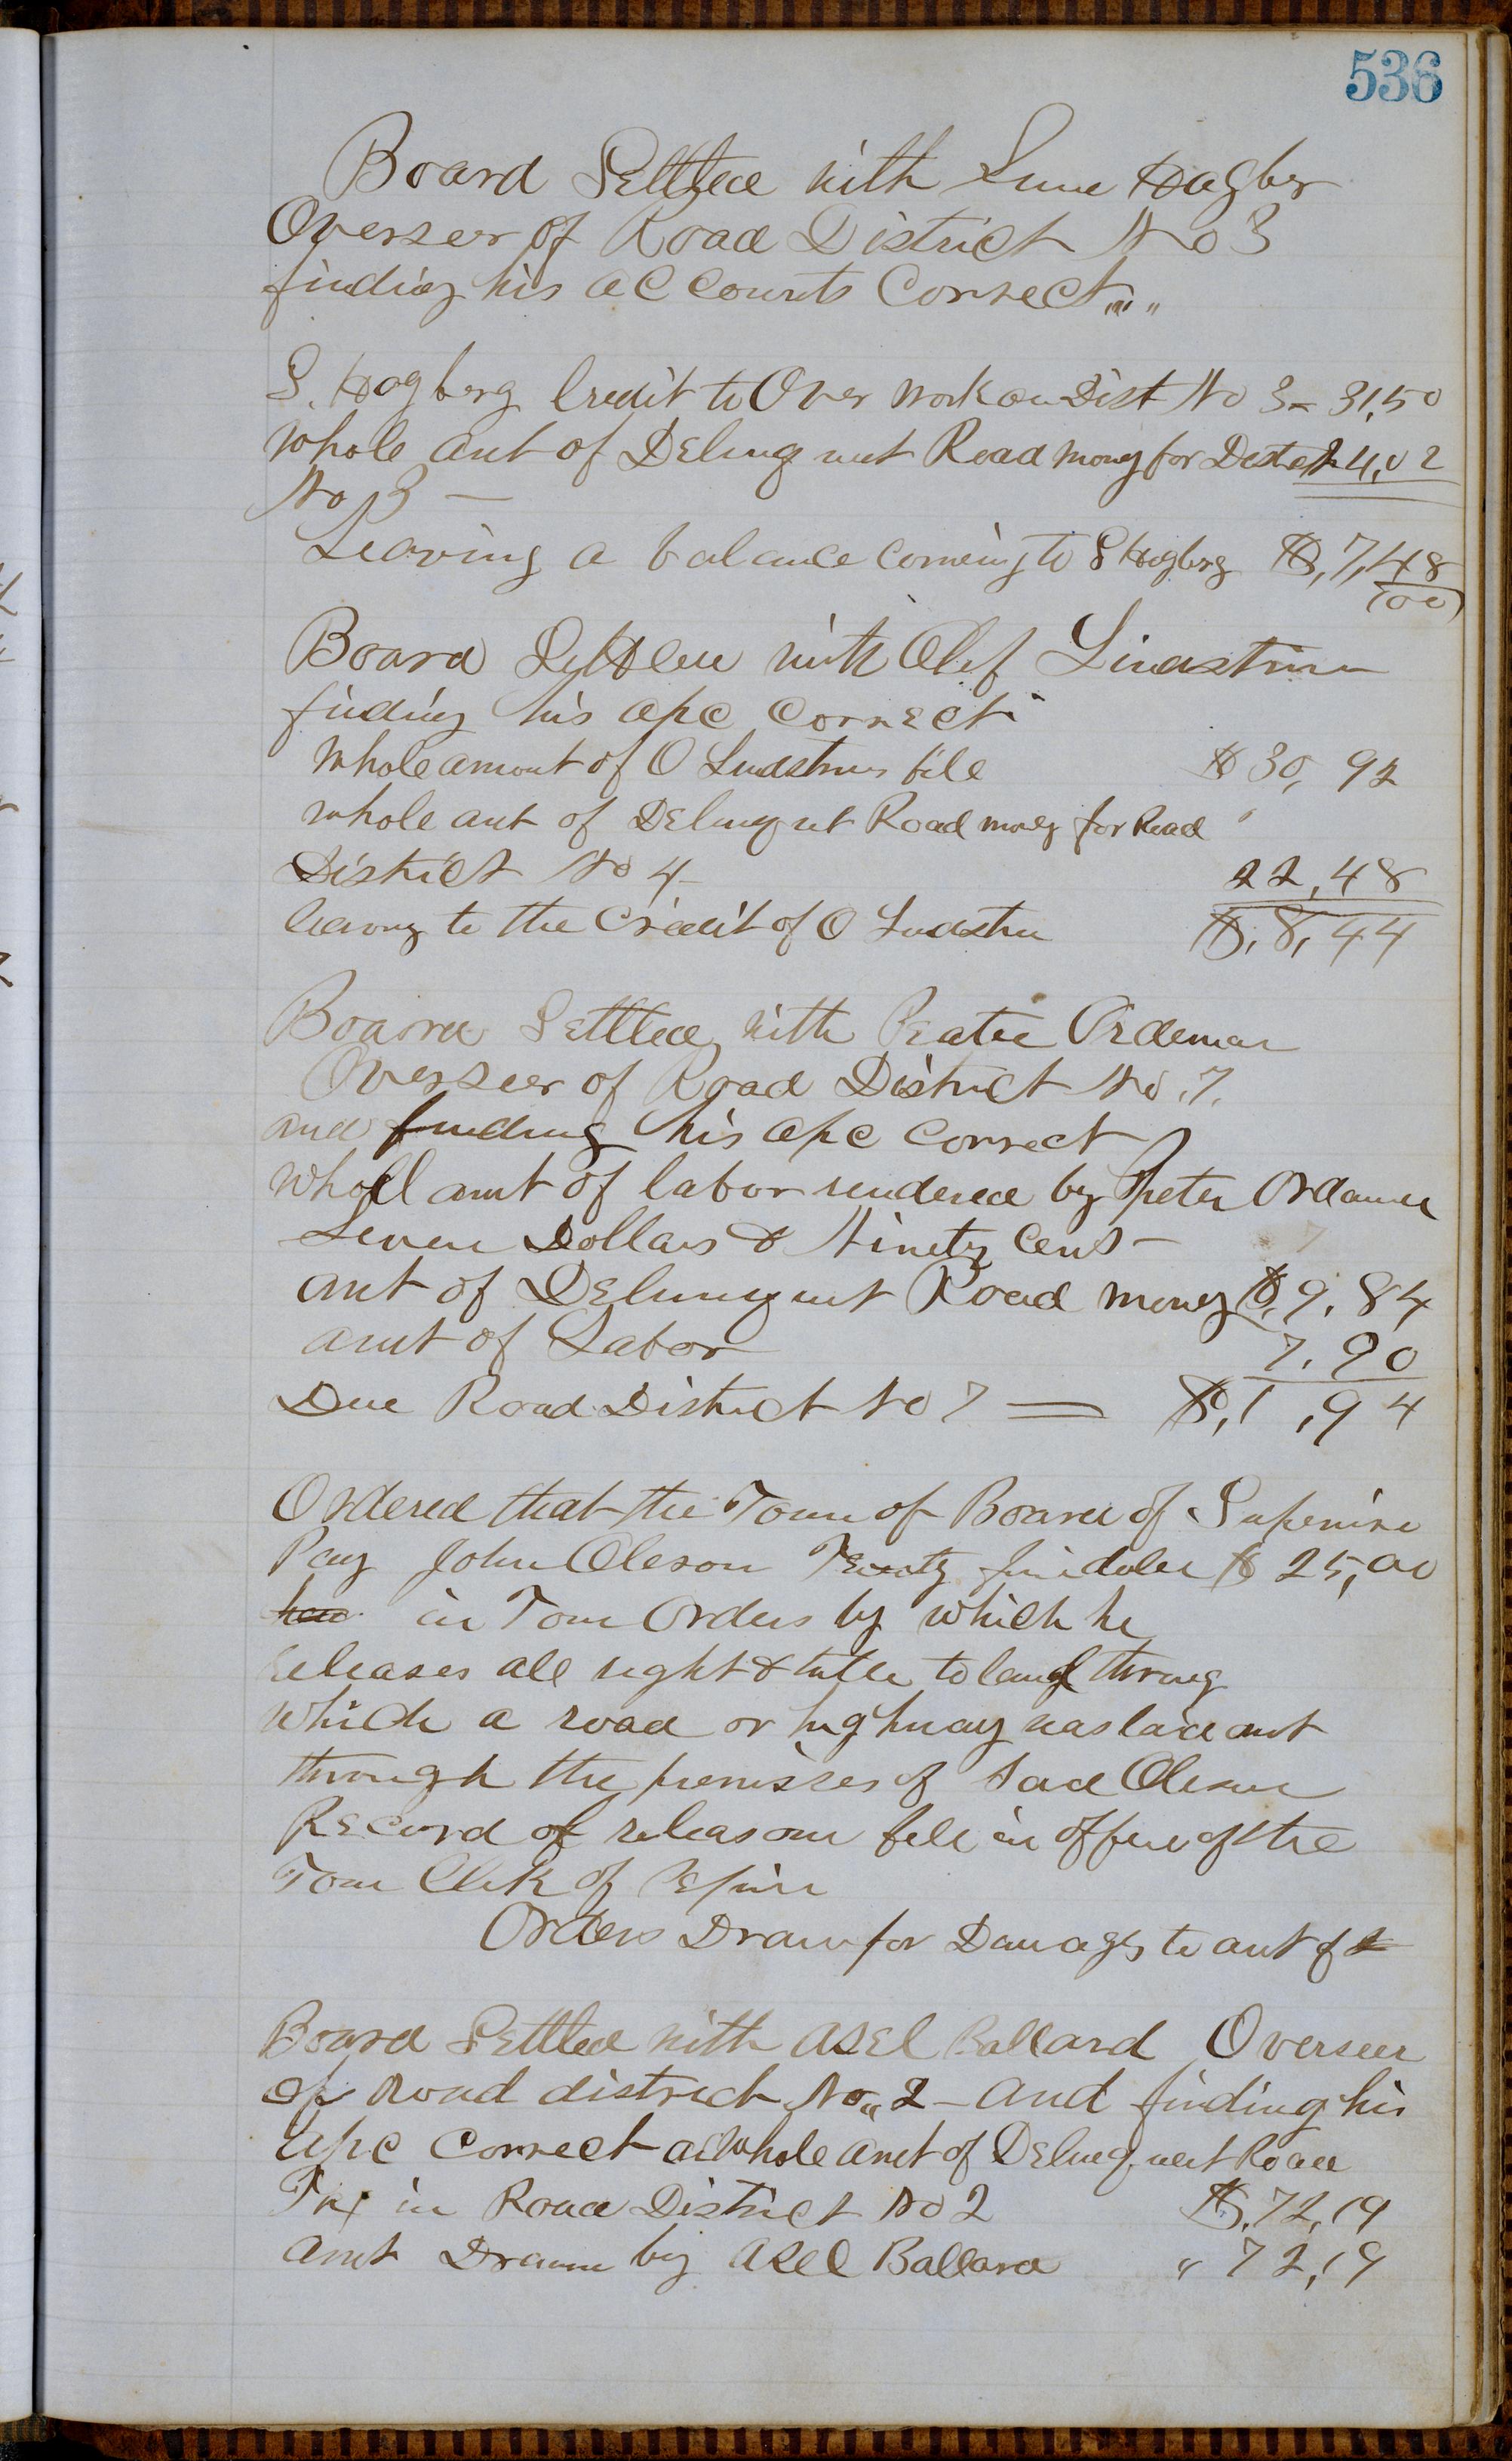 536
Board Settled with Sune Hagber
Overseer of Road District No 3
finding his accounts Correct
S. Hogberg Credit to Over work on Dist No 3 - 31,50
Whole amt of Delinq unt Road mony for Dist 24,02
No 3 —
Leaving a balance coming to S Hogberg $,7,48/100
Board Settled with Olef Lindstrim
finding his apc correct
Whole amout of O Lindstrim bill $30,92
Whole amt of Delinqunt Road mony for Road "
District No 4 22,48
leaving to the Credit of O Lindstrm $,8,44
Board Settled with Peater Ordeman
Overseer of Road District No.7.
and finding his apc correct
Wholl amt of labor rendered by Peter Ordaman
Seven Dollars & Ninety Cents —
amt of Delinqunt Road money $,9,84
amt of Labor 7.90
Due Road District No 7 = $,1,94
Ordered that the Town of Board of Supervise
Pay John Oleson Twenty five doler $25,00
in Town Orders by which he
releases all right & title to land throug
which a road or highway was laid out
through the premisses of said Oleson
Record of releas on file in office of the
Town Clerk of Pepin
Orders Drawn for Damages to amt of
Board Settled with Asel Ballard Overseer
of Road district No,, 2 — and finding his
apc correct whole amt of Delinquent Road
Tax in Road District No 2 $,72,19
Amt Drawn by Asel Ballard " 72,19